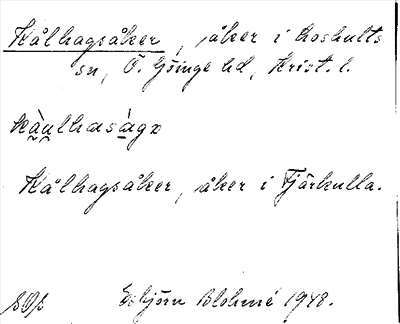 Kålhagsåker, åker i Loshults
sn, Ö. Göinge hd, Krist. l.
kàu̯lhasàgɔ
Kålhagsåker, åker i Fjärkulla.
Esbjörn Blohmé 1948.